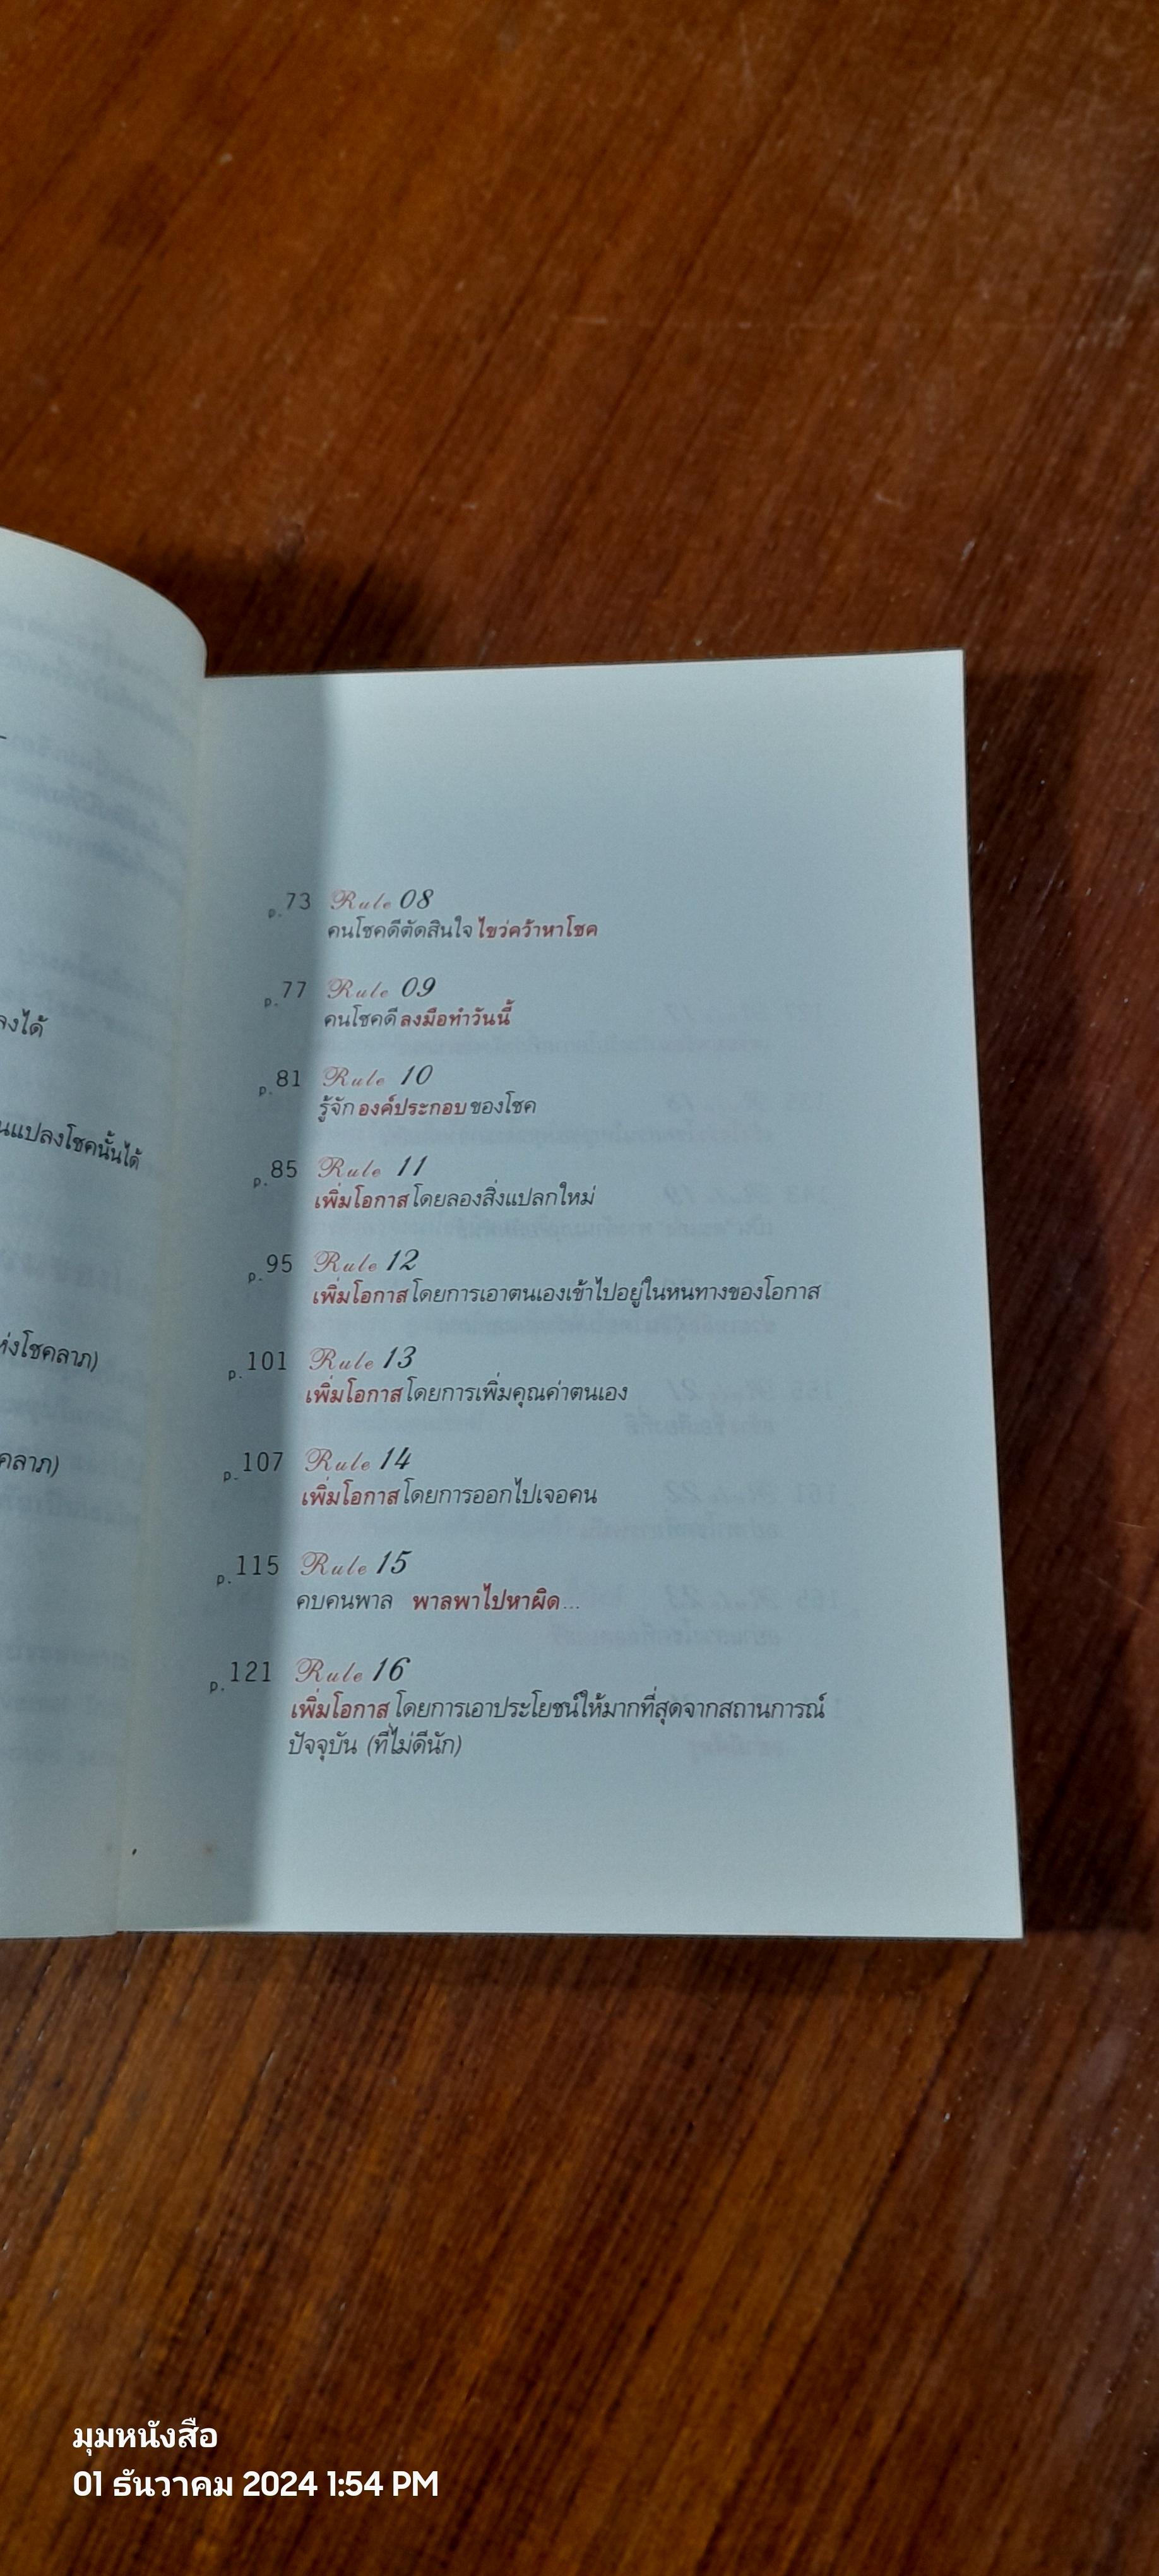 ลงได้
นแปลงโชคนั้นได้
ห่งโชคลาภ)
คลาภ)
p.73 Rule 08
คนโชคดีตัดสินใจ ไขว่คว้าหาโชค
p.77 Rule 09
คนโชคดี ลงมือทำวันนี้
p.81 Rule 10
รู้จัก องค์ประกอบ ของโชค
p.85 Rule 11
เพิ่มโอกาส โดยลองสิ่งแปลกใหม่
p.95 Rule 12
เพิ่มโอกาส โดยการเอาตนเองเข้าไปอยู่ในหนทางของโอกาส
p.101 Rule 13
เพิ่มโอกาส โดยการเพิ่มคุณค่าตนเอง
p.107 Rule 14
เพิ่มโอกาส โดยการออกไปเจอคน
p.115 Rule 15
คบคนพาล พาลพาไปหาผิด...
p.121 Rule 16
เพิ่มโอกาส โดยการเอาประโยชน์ให้มากที่สุดจากสถานการณ์
ปัจจุบัน (ที่ไม่ดีนัก)
มุมหนังสือ
01 ธันวาคม 2024 1:54 PM